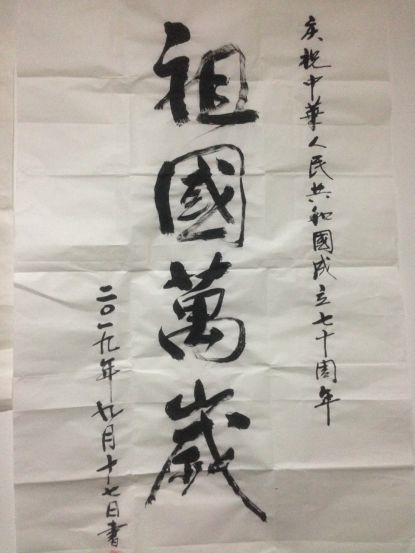 庆祝中華人民共和國成立七十周年
祖國萬歲
二〇一九年九月十七日書